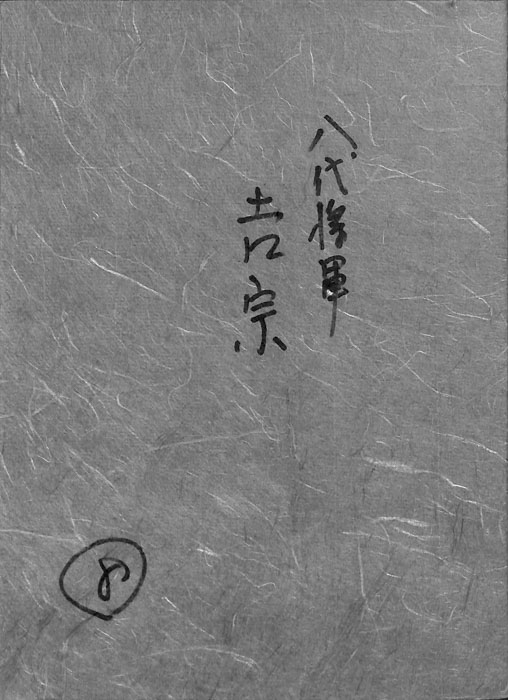 八代将軍
吉宗